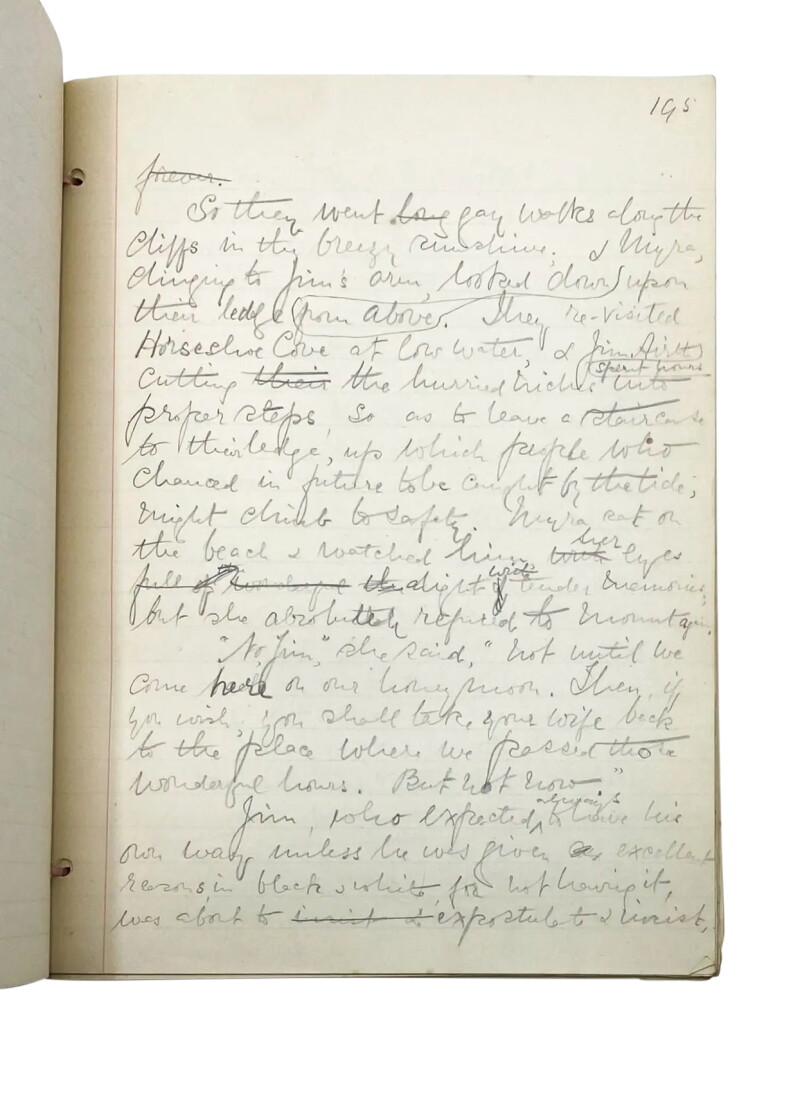 195
forever.
So they went long gay walks along the
cliffs in the breezy sunshine; & Myra,
clinging to Jim's arm, looked down upon
their ledge from above. They re-visited
Horseshoe Cove at low water, & Jim Airth
spent hours
cutting their the hurried niches into
proper steps, so as to leave a staircase
to their ledge, up which people who
chanced in future to be caught by the tide,
might climb to safety. Myra sat on
her
the beach & watched him, with eyes
with
full of wonderful the alight & tender memories;
but she absolutely refused to mount again.
"No, Jim," she said, "not until we
come here on our honeymoon. Then, if
you wish, you shall take your wife back
to the place where we passed those
wonderful hours. But not now."
always
Jim, who expected to have his
own way, unless he was given excellent
reasons in black & white for not having it,
was about to insist & expostulate & insist,